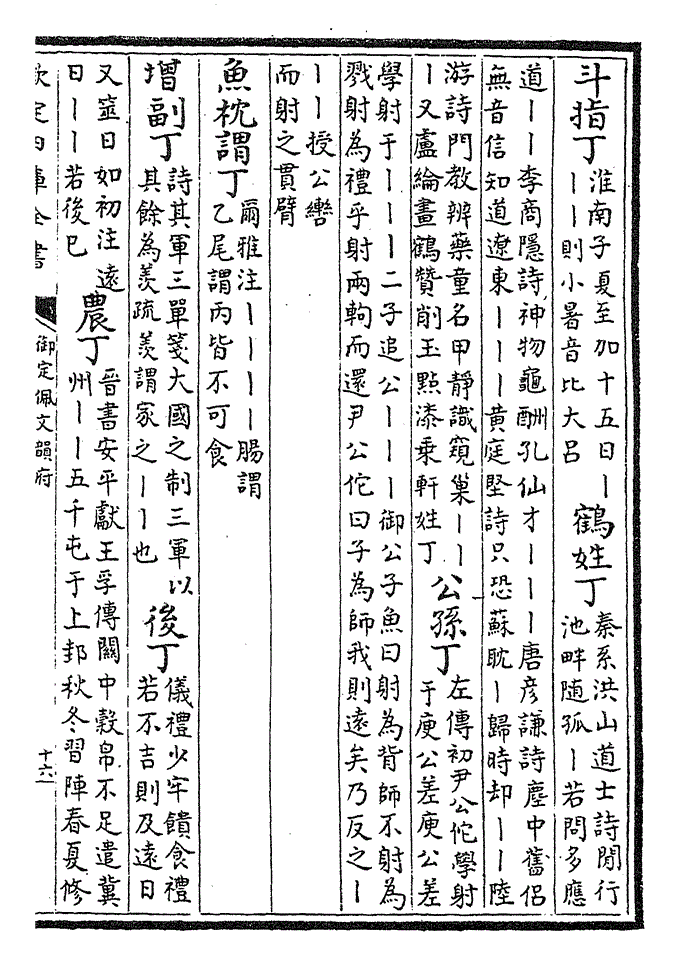 斗指丁
淮南子夏至加十五日丨
丨丨則小暑音比大吕
鶴姓丁
秦系洪山道士詩閒行
池畔随孤丨若問多應
道丨丨李商隱詩神物龜酬孔仙才丨丨丨唐彦謙詩塵中舊侣
無音信知道遼東丨丨丨黄庭堅詩只恐蘇耽丨歸時却丨丨陸
游詩門教辨藥童名甲靜識窺巢丨丨
丨又盧綸畫鶴贊削玉點漆乗軒姓丁
公孫丁
左傳初尹公佗學射
于庾公差庾公差
學射于丨丨丨二子追公丨丨丨御公子魚曰射為背師不射為
戮射為禮乎射兩軥而還尹公佗曰子為師我則遠矣乃反之丨
丨丨授公轡
而射之貫臂
魚枕謂丁
爾雅注丨丨丨丨腸謂
乙尾謂丙皆不可食
増副丁
詩其軍三單箋大國之制三軍以
其餘為羨疏羨謂家之丨丨也
後丁
儀禮少牢饋食禮
若不吉則及遠日
又筮日如初注遠
日丨丨若後巳
農丁
晉書安平獻王孚傳關中穀帛不足遣冀
州丨丨五千屯于上邽秋冬習陣春夏修
欽定四庫全書
御定佩文韻府
十六